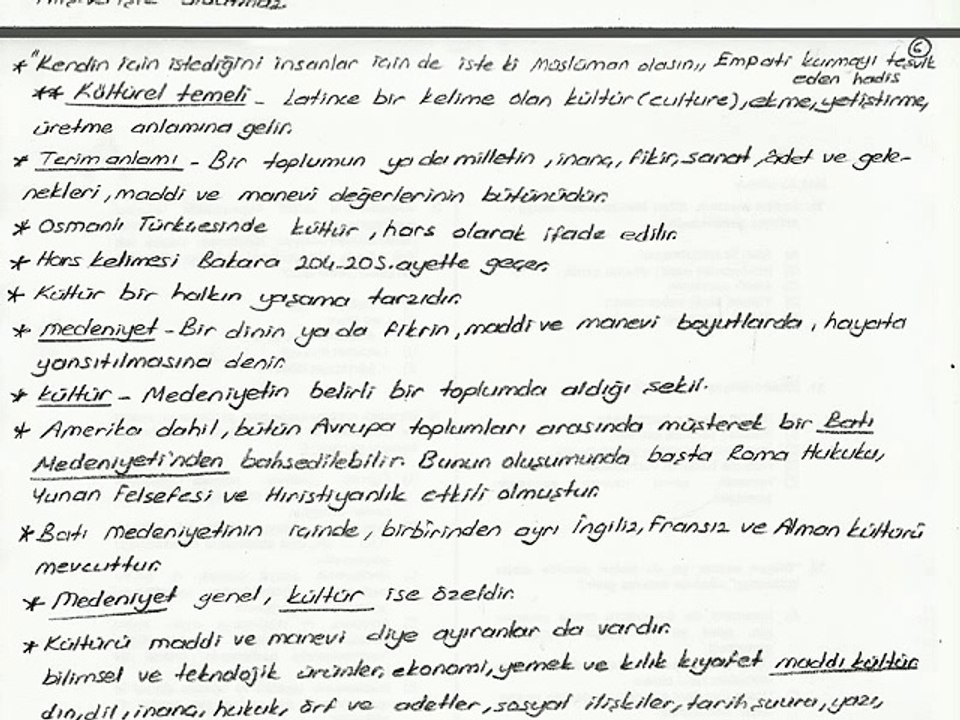 * "Kendin için istediğini insanlar için de iste ki Müslüman olasın,, Empati kurmayı teşvik
eden hadis
6
** Kültürel temeli - Latince bir kelime olan kültür (culture), ekme, yetiştirme,
üretme anlamına gelir.
* Terim anlamı - Bir toplumun ya da milletin, inanç, fikir, sanat, âdet ve gele-
nekleri, maddi ve manevi değerlerinin bütünüdür.
* Osmanlı Türkçesinde kültür, hars olarak ifade edilir.
* Hars kelimesi Bakara 204-205. ayette geçer.
* Kültür bir halkın yaşama tarzıdır.
* Medeniyet - Bir dinin ya da fikrin, maddi ve manevi boyutlarda, hayata
yansıtılmasına denir.
* Kültür - Medeniyetin belirli bir toplumda aldığı şekil.
* Amerika dahil, bütün Avrupa toplumları arasında müşterek bir Batı
Medeniyeti'nden bahsedilebilir. Bunun oluşumunda başta Roma Hukuku,
Yunan Felsefesi ve Hıristiyanlık etkili olmuştur.
* Batı medeniyetinin içinde, birbirinden ayrı İngiliz, Fransız ve Alman kültürü
mevcuttur.
* Medeniyet genel, kültür ise özeldir.
* Kültürü maddi ve manevi diye ayıranlar da vardır.
bilimsel ve teknolojik ürünler, ekonomi, yemek ve kılık kıyafet maddi kültür
din, dil, inanç, hukuk, örf ve adetler, sosyal ilişkiler, tarih şuuru, yazı,